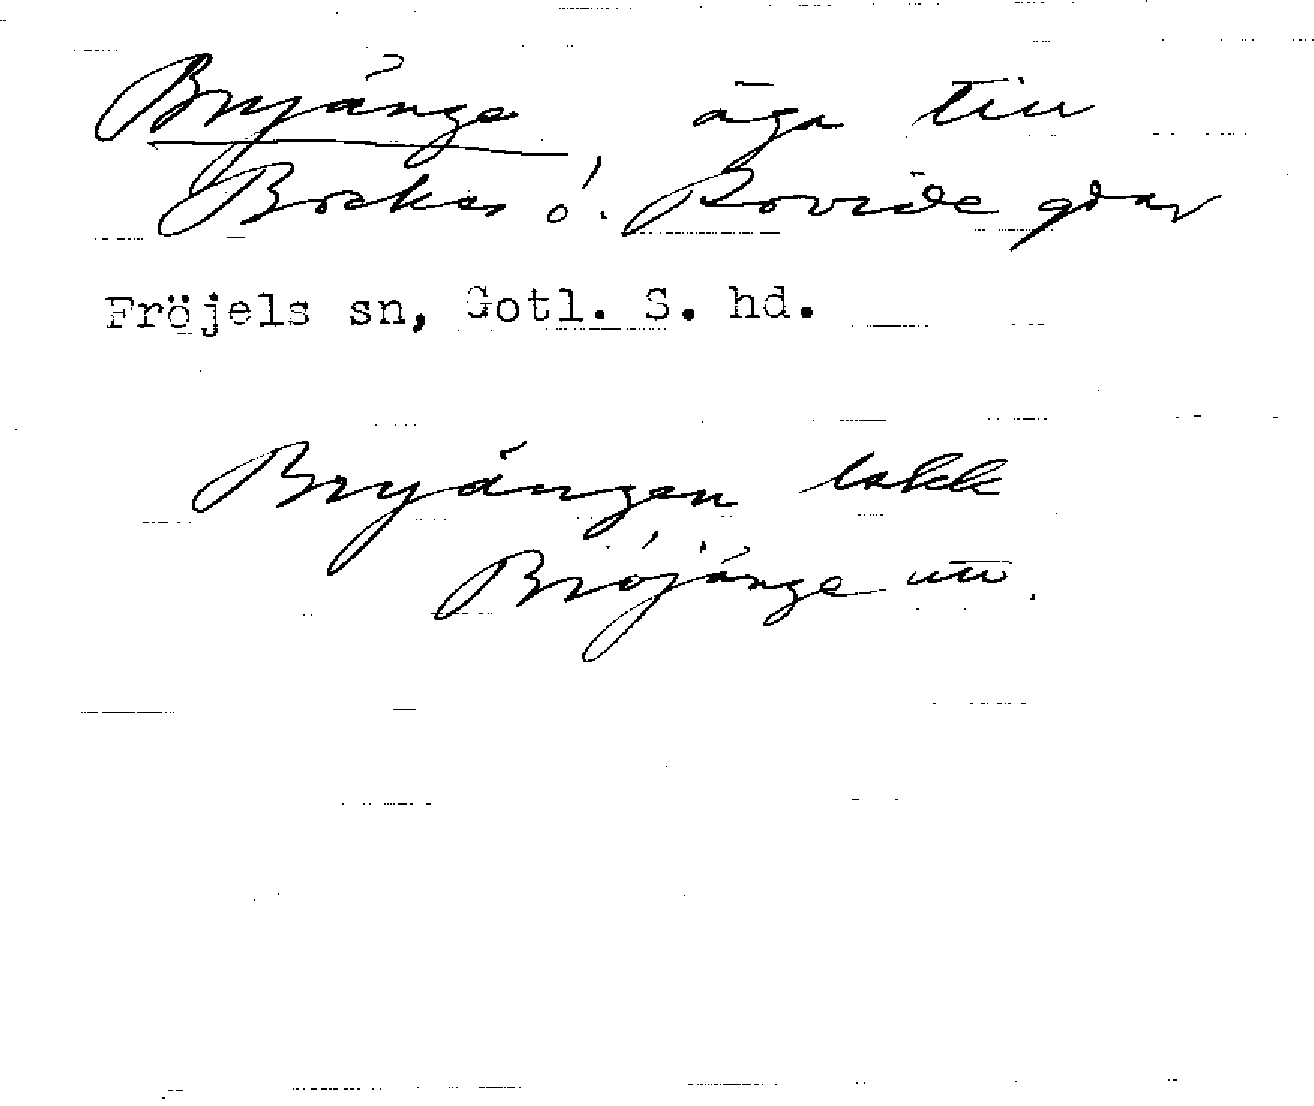 Bryänge äga till
Bockes o. Rovide gdar
Fröjels sn, Gotl. S. hd.
Bryängen lakk
Bröjänge